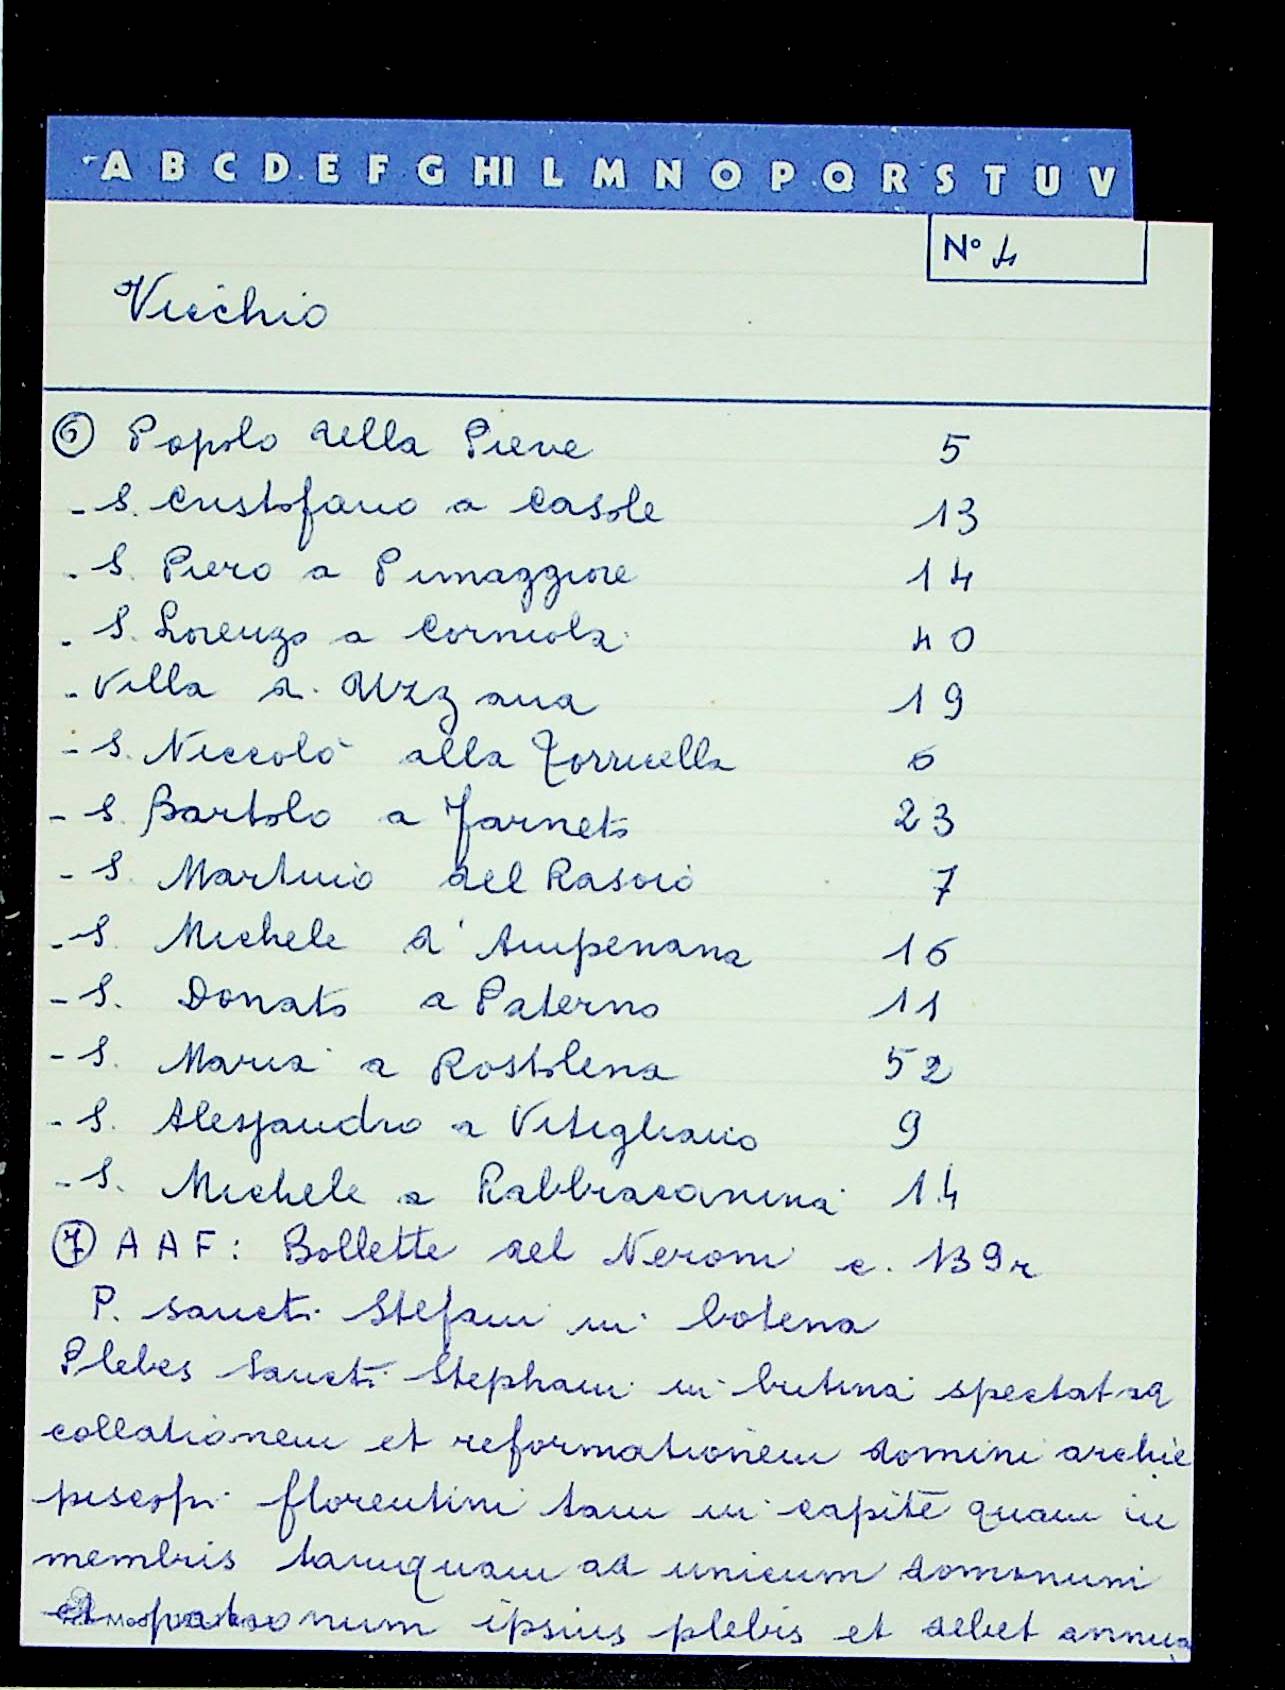 A B C D E F G HI L M N O P Q R S T U V
N° 4
Vicchio
⑥ Popolo della Pieve 5
- S. Cristofano a Casole 13
- S. Piero a Pimaggiore 14
- S. Lorenzo a Corniola 40
- Villa d. Uzzana 19
- S. Niccolò alla Torricella 6
- S. Bartolo a Farneto 23
- S. Martino del Rasoio 7
- S. Michele d'Ampenana 16
- S. Donato a Paterno 11
- S. Maria a Rostolena 52
- S. Alessandro a Vitigliano 9
- S. Michele a Rabbiacanina 14
⑦ A A F: Bollette del Neroni c. 139r
P. sancti Stefani in botena
Plebes Sancti Stephani in butina spectat ad
collationem et reformationem domini archie
piscopi florentini tam in capite quam in
membris tamquam ad unicum dominum
et patronum ipsius plebis et debet annua